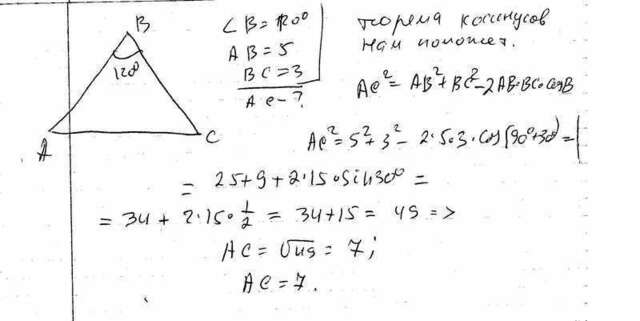 B
120°
A
C
∠B = 120°
AB = 5
BC = 3
AC - ?
теорема косинусов
нам поможет.
AC² = AB² + BC² - 2AB·BC·cosB
AC² = 5² + 3² - 2·5·3·cos(90° + 30°) =
= 25 + 9 + 2·15·sin30° =
= 34 + 2·15·1/2 = 34 + 15 = 49 =>
AC = √49 = 7;
AC = 7.